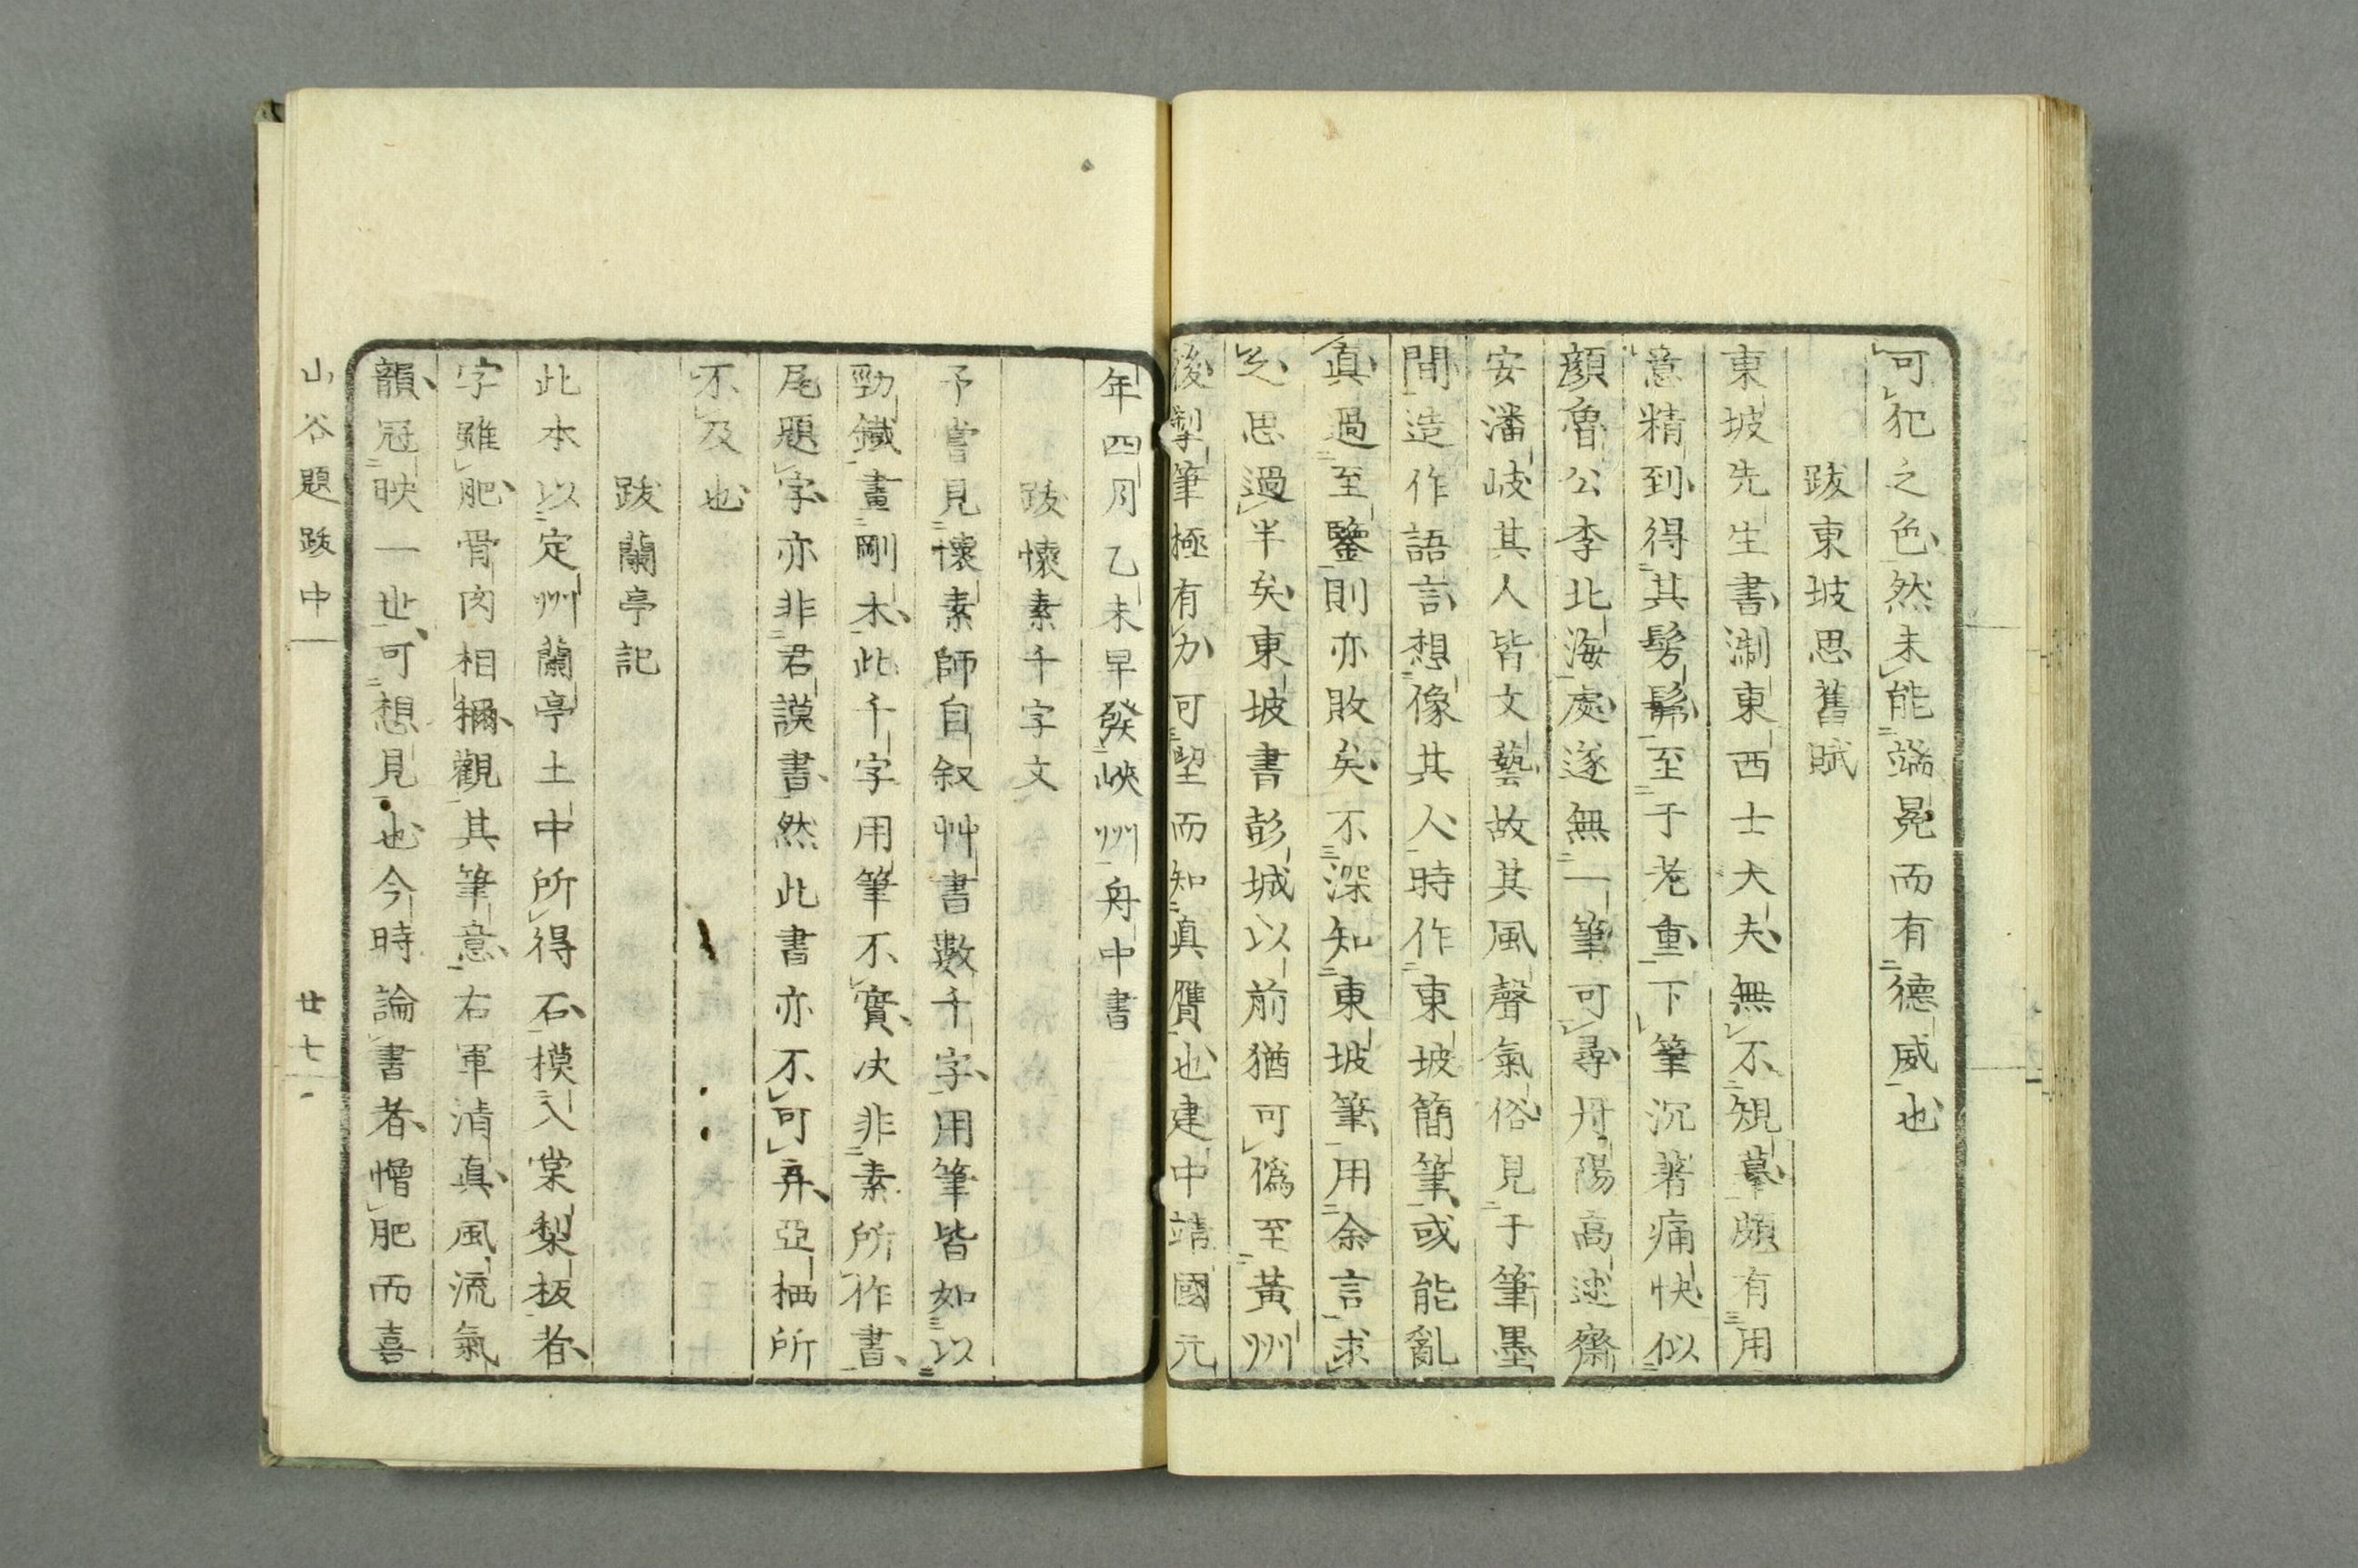 可犯之色然未能端冕而有德威也
跋東坡思舊賦
東坡先生書淛東西士大夫無不規摹頗有用
意精到得其髣髴至于老重下筆沉著痛快似
顔魯公李北海處遂無一筆可尋丹陽高述齋
安潘岐其人皆文藝故其風聲氣俗見于筆墨
間造作語言想像其人時作東坡簡筆或能亂
真過至鑒則亦敗矣不深知東坡筆用余言求
之思過半矣東坡書彭城以前猶可僞至黃州
後掣筆極有力可望而知真贋也建中靖國元
年四月乙未早發峽州舟中書
跋懷素千字文
予嘗見懷素師自叙艸書數千字用筆皆如以
勁鐵畫剛木此千字用筆不實决非素所作書
尾題字亦非君謨書然此書亦不可弃亞栖所
不及也
跋蘭亭記
此本以定州蘭亭土中所得石模入棠梨板者
字雖肥骨肉相稱觀其筆意右軍清真風流氣
韻冠映一世可想見也今時論書者憎肥而喜
山谷題跋中
廿七